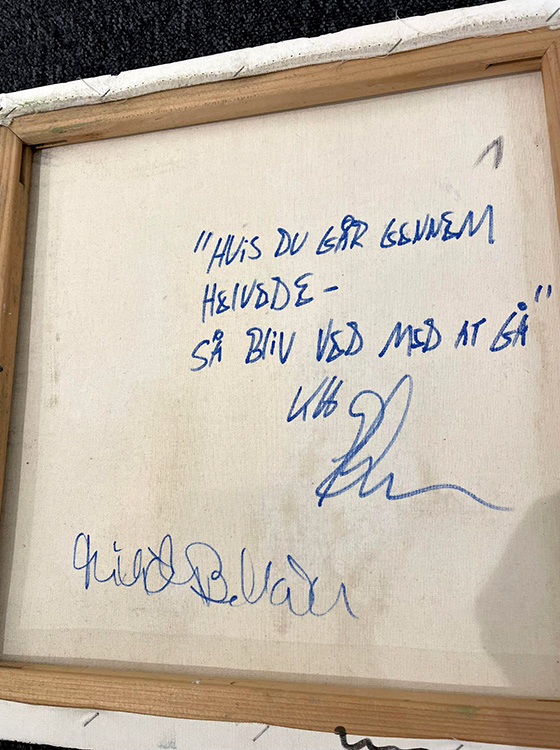 "HVIS DU GÅR GENNEM
HELVEDE –
SÅ BLIV VED MED AT GÅ"
KH